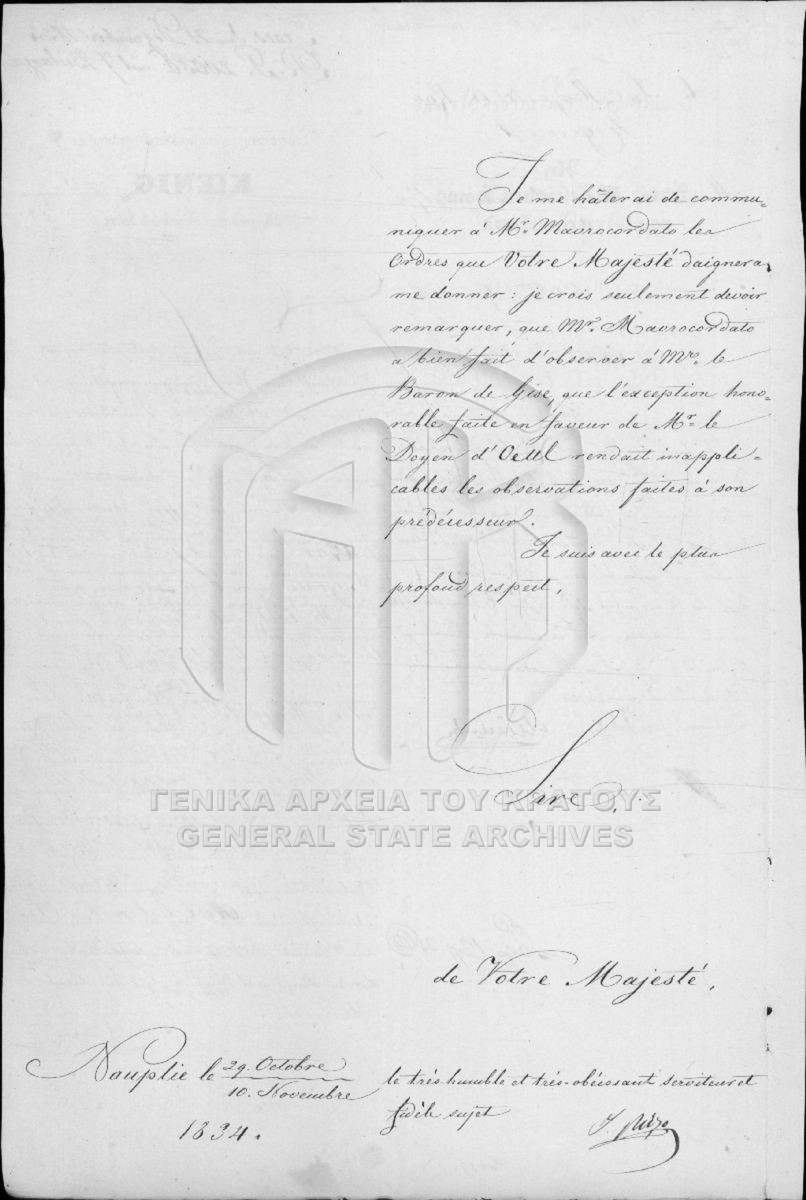 Je me hâterai de commu-
niquer à Mr. Mavrocordato les
Ordres que Votre Majesté daignera
me donner: je crois seulement devoir
remarquer, que Mr. Mavrocordato
a bien fait d'observer à Mr. le
Baron de Gise, que l'exception hono-
rable faite en faveur de Mr. le
Doyen d'Oettl rendait inappli-
cables les observations faites à son
prédécesseur.
Je suis avec le plus
profond respect,
Sire,
ΓΕΝΙΚΑ ΑΡΧΕΙΑ ΤΟΥ ΚΡΑΤΟΥΣ
GENERAL STATE ARCHIVES
de Votre Majesté,
Nauplie le 29. Octobre
10. Novembre
1834.
le très-humble et très-obéissant serviteur et
fidèle sujet
J. Rizo